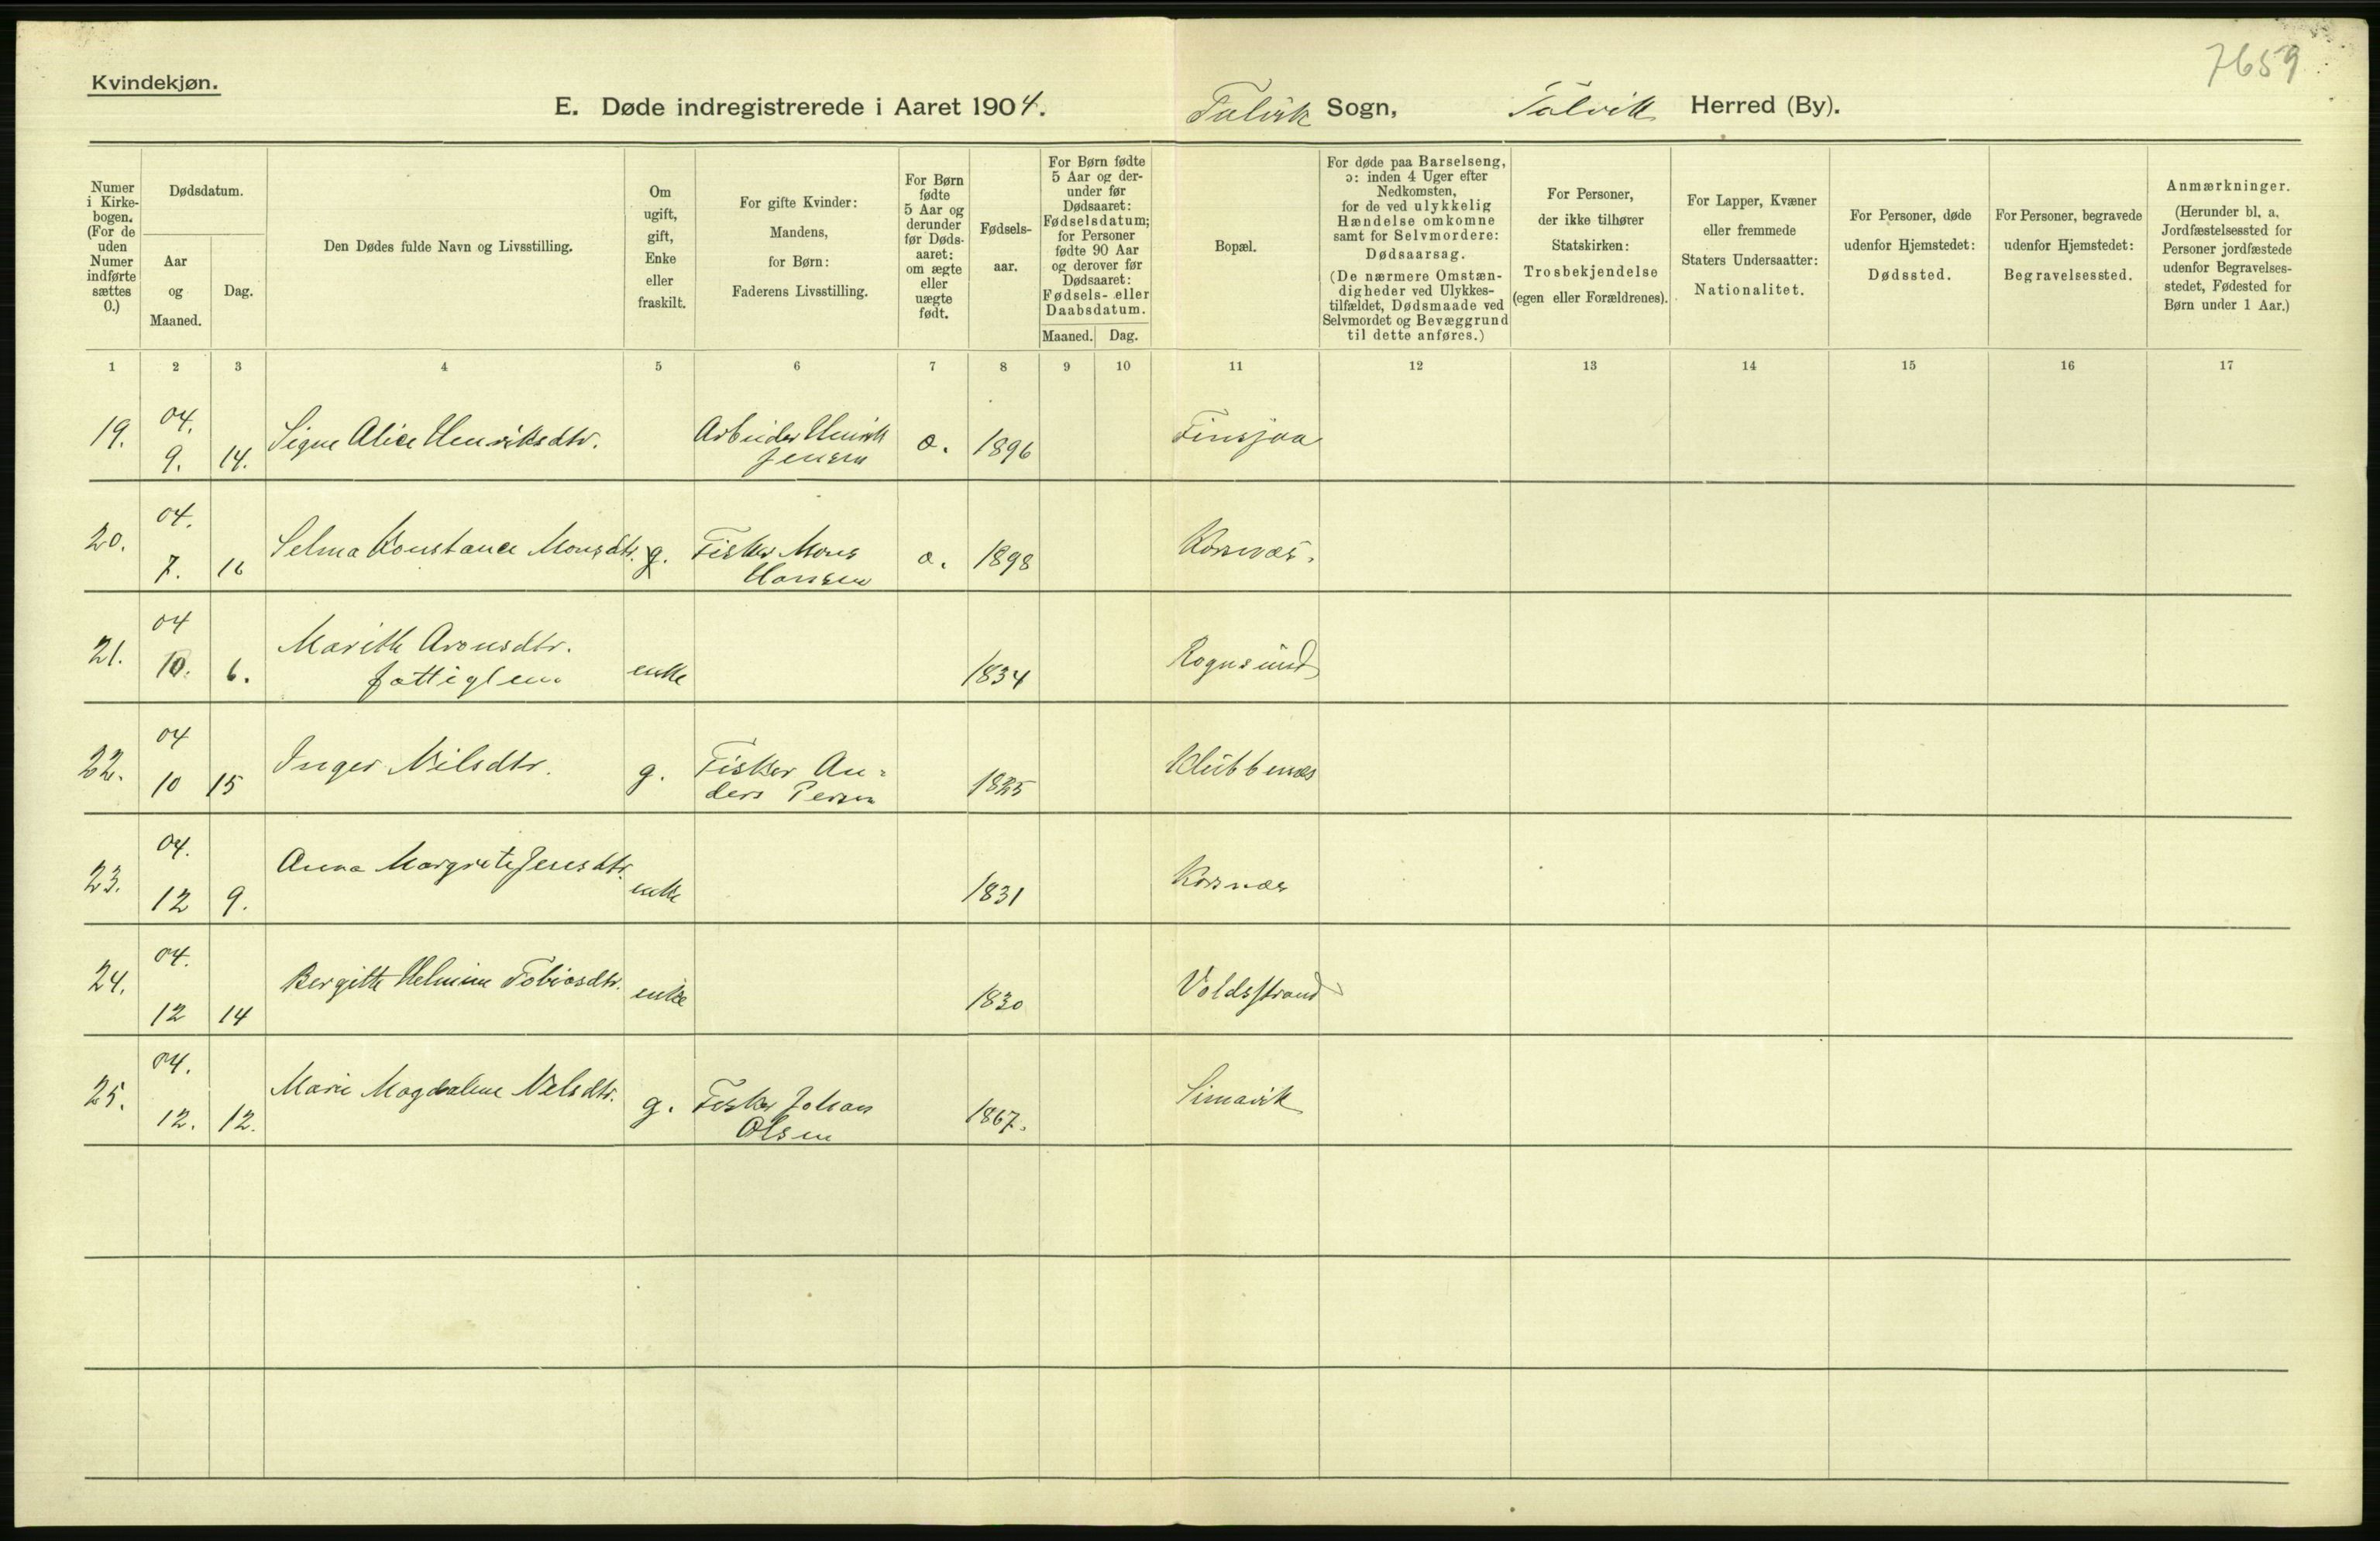 7659
Kvindekjøn.
E. Døde indregistrerede i Aaret 1904. Talvik Sogn, Talvik Herred (By).
Numer i Kirke-bogen. (For de uden Numer indførte sættes 0.)
Dødsdatum.
Aar og Maaned.
Dag.
Den Dødes fulde Navn og Livsstilling.
Om ugift, gift, Enke eller fraskilt.
For gifte Kvinder: Mandens, for Børn: Faderens Livsstilling.
For Børn fødte 5 Aar og derunder før Døds-aaret: om ægte eller uægte født.
Fødsels-aar.
For Børn fødte 5 Aar og der-under før Dødsaaret: Fødselsdatum; for Personer fødte 90 Aar og derover før Dødsaaret: Fødsels- eller Daabsdatum.
Maaned. Dag.
Bopæl.
For døde paa Barselseng, ɔ: inden 4 Uger efter Nedkomsten, for de ved ulykkelig Hændelse omkomne samt for Selvmordere: Dødsaarsag. (De nærmere Omstæn-digheder ved Ulykkes-tilfældet, Dødsmaade ved Selvmordet og Bevæggrund til dette anføres.)
For Personer, der ikke tilhører Statskirken: Trosbekjendelse (egen eller Forældrenes).
For Lapper, Kvæner eller fremmede Staters Undersaatter: Nationalitet.
For Personer, døde udenfor Hjemstedet: Dødssted.
For Personer, begravede udenfor Hjemstedet: Begravelsessted.
Anmærkninger. (Herunder bl. a. Jordfæstelsessted for Personer jordfæstede udenfor Begravelses-stedet, Fødested for Børn under 1 Aar.)
1 2 3 4 5 6 7 8 9 10 11 12 13 14 15 16 17
19. 04. 9. 14. Signe Alice Henriksdtr. Arbeider Henrik Jensen 1896
20. 04. 7. 16 Selma Konstance Monsdtr. g. Fisker Mons Hansen 1898 Korsnæs.
21. 04 10. 6. Marith Aronsdtr. fattiglem enke 1834 Rognsund
22. 04 10 15 Inger Nilsdtr. g. Fisker An=
ders Persen Klubbenæs
23. 04. 12 9. Anna Margrete Jensdtr. enke 1831 Korsnæs
24. 04. 12 14 Bergitte Helmine Tobiasdtr. enke 1830 Voldsstrand
25. 04. 12. 12. Marie Magdalene Nilsdtr. g. Fisker Johan Olsen 1867. Simavik